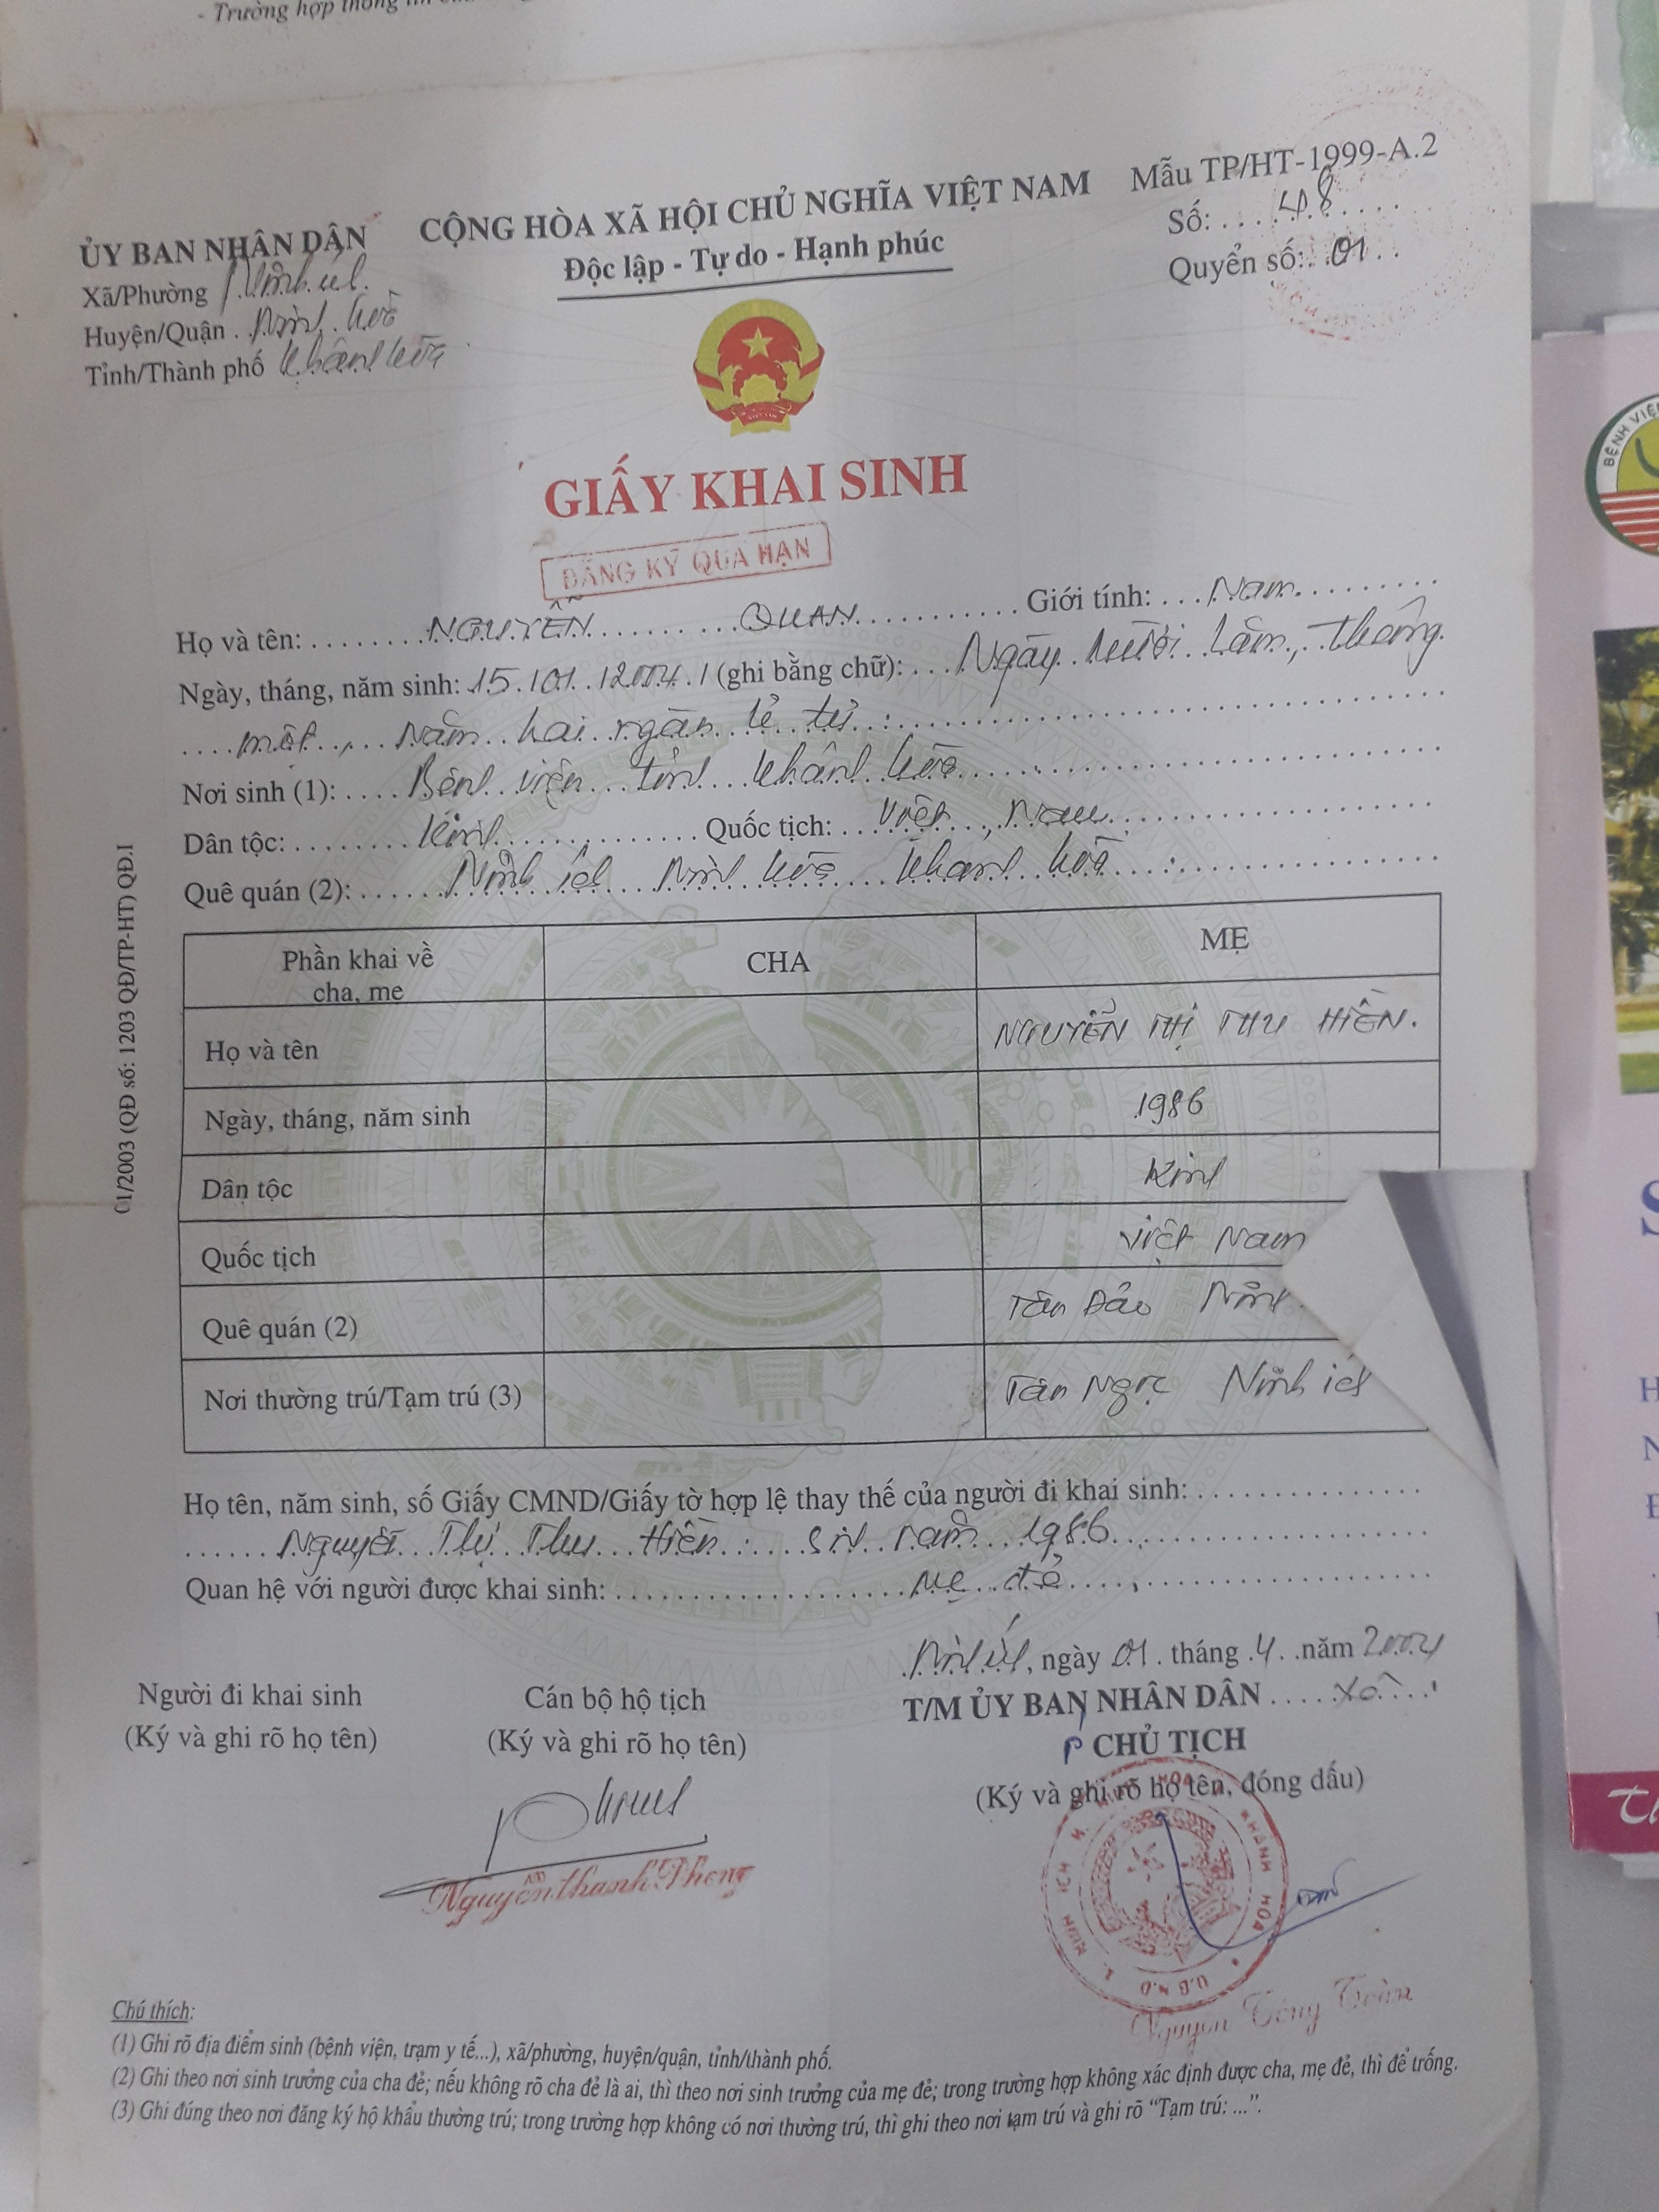 - Trường hợp thông tin
CỘNG HÒA XÃ HỘI CHỦ NGHĨA VIỆT NAM
Độc lập - Tự do - Hạnh phúc
Mẫu TP/HT-1999-A.2
Số: 48
Quyển số: 01
ỦY BAN NHÂN DÂN
Xã/Phường Ninh Ích
Huyện/Quận Ninh Hòa
Tỉnh/Thành phố Khánh Hòa
GIẤY KHAI SINH
ĐĂNG KÝ QUÁ HẠN
Họ và tên: NGUYỄN QUAN Giới tính: Nam
Ngày, tháng, năm sinh: 15/01/2004/ (ghi bằng chữ): Ngày Mười Lăm, tháng
một, Năm hai ngàn lẻ tư
Nơi sinh (1): Bệnh viện tỉnh Khánh Hòa
Dân tộc: Kinh Quốc tịch: Việt Nam
Quê quán (2): Ninh Ích Ninh Hòa Khánh Hòa
Phần khai về cha, mẹ CHA MẸ
Họ và tên NGUYỄN THỊ THU HIỀN.
Ngày, tháng, năm sinh 1986
Dân tộc Kinh
Quốc tịch Việt Nam
Quê quán (2) Tân Đảo Ninh
Nơi thường trú/Tạm trú (3) Tân Ngọc Ninh Ích
Họ tên, năm sinh, số Giấy CMND/Giấy tờ hợp lệ thay thế của người đi khai sinh:
Nguyễn Thị Thu Hiền sinh năm 1986
Quan hệ với người được khai sinh: Mẹ đẻ
Ninh Ích, ngày 01 tháng 4 năm 2004
T/M ỦY BAN NHÂN DÂN Xã
P CHỦ TỊCH
(Ký và ghi rõ họ tên, đóng dấu)
Người đi khai sinh
(Ký và ghi rõ họ tên)
Cán bộ hộ tịch
(Ký và ghi rõ họ tên)
Nguyễn Thanh Phong
U.B.N.D X. NINH ÍCH H. NINH HÒA KHÁNH HÒA
Nguyễn Toàn
Chú thích:
(1) Ghi rõ địa điểm sinh (bệnh viện, trạm y tế...), xã/phường, huyện/quận, tỉnh/thành phố.
(2) Ghi theo nơi sinh trưởng của cha đẻ; nếu không rõ cha đẻ là ai, thì theo nơi sinh trưởng của mẹ đẻ; trong trường hợp không xác định được cha, mẹ đẻ, thì để trống.
(3) Ghi đúng theo nơi đăng ký hộ khẩu thường trú; trong trường hợp không có nơi thường trú, thì ghi theo nơi tạm trú và ghi rõ “Tạm trú: ...”.
01/2003 (QĐ số: 1203 QĐ/TP-HT) QĐ.I
BỆNH VIỆN